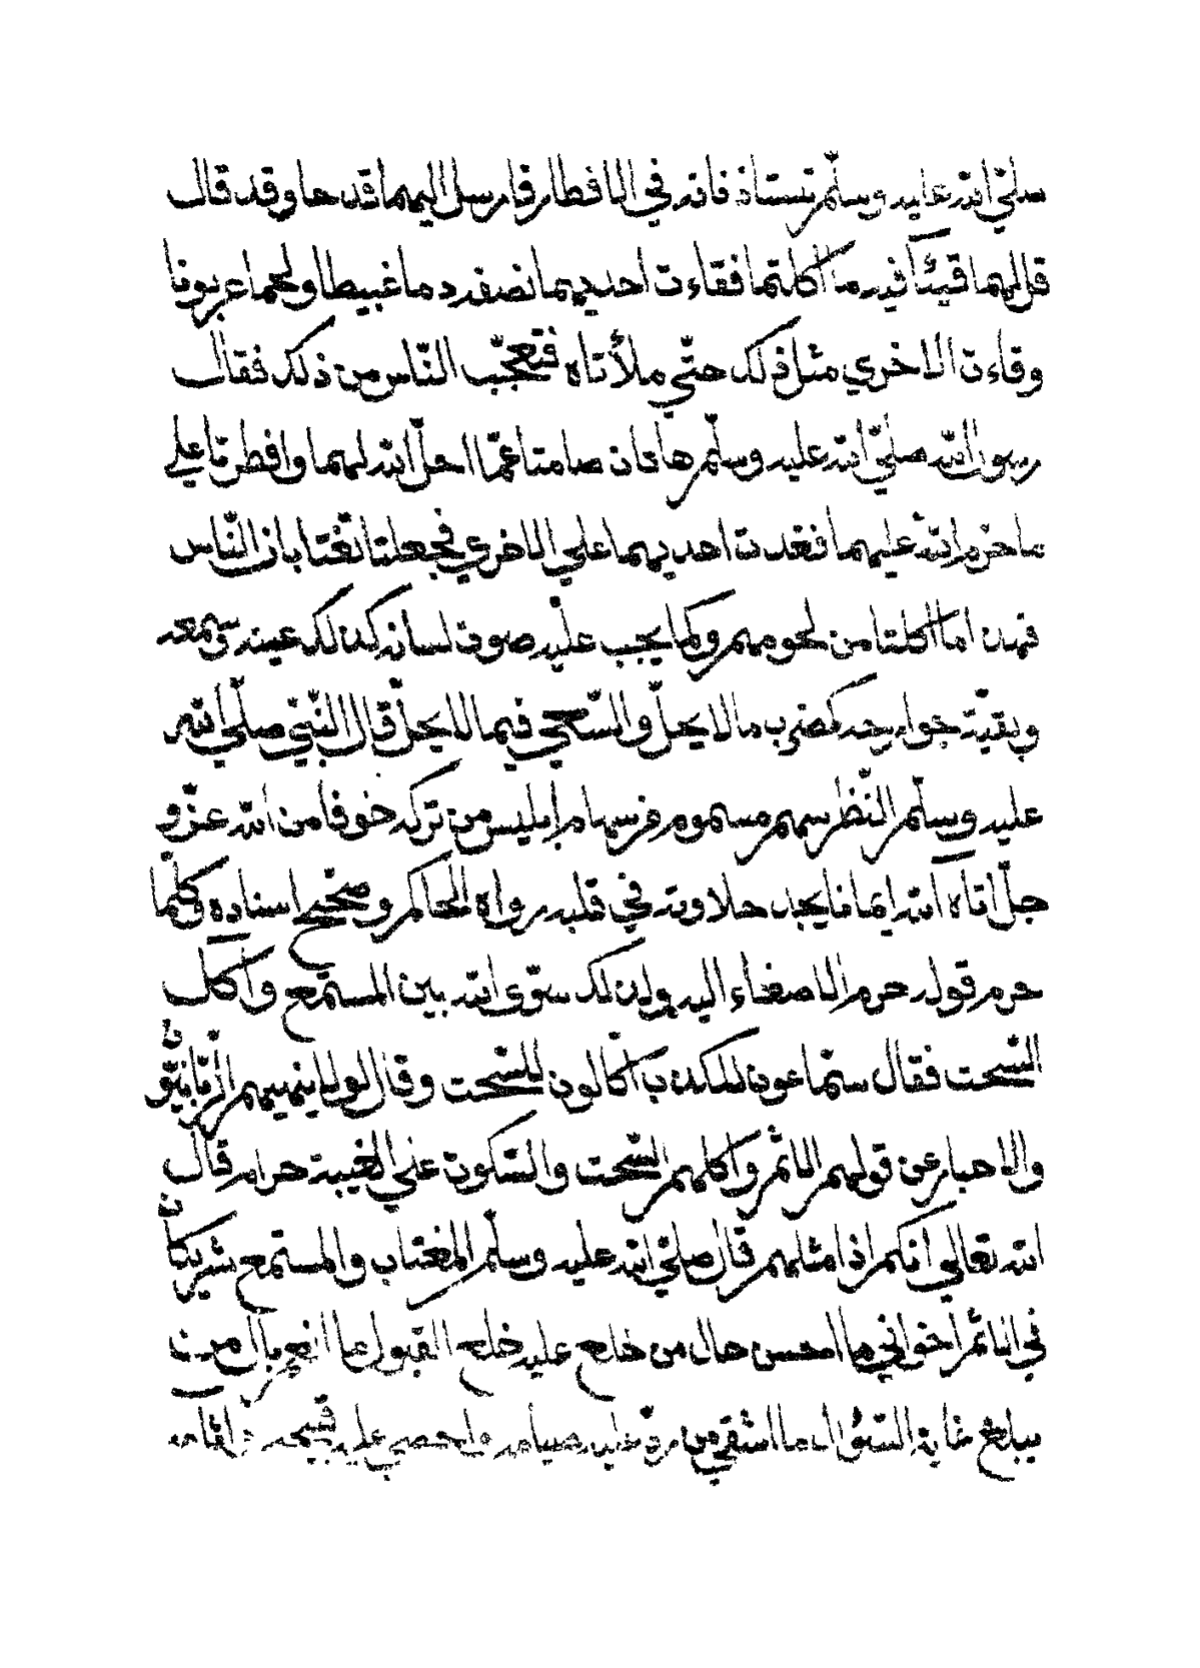 صلّي الله عليه وسلّم تستاذ فانه في الافطار فارسل اليهما قدحا وقد قال
قل لهما قيئآ فيه ما اكلتما فقاءت احديهما نصفه دما غبيطا ولحما عريونا
وقاءت الاخري مثل ذلك حتّي ملأتاه فتعجّب النّاس من ذلك فقال
رسول الله صلّي الله عليه وسلّم هاتان صامتا عمّا احلّ الله لهما وافطرتا علي
ما حرّم الله عليهما فقدت احديهما علي الاخري فجعلتا تغتابان النّاس
فهذا ما اكلتا من لحومهم وكما يجب عليه صون لسانه كذلك عينه وسمعه
وبقيّة جوارحه كضرب ما لا يحلّ والسّعي فيما لا يحلّ قال النّبيّ صلّي الله
عليه وسلّم النّظر سهم مسموم من سهام ابليس من تركه خوفا من الله عزّ و
جلّ اتاه الله ايمانا يجد حلاوته في قلبه رواه الحاكم وصحّح اسناده وكلّما
حرم قوله حرم الاصغاء اليه ولذلك سوّي الله بين المستمع وآكل
السّحت فقال سمّاعون للكذب اكّالون للسّحت وقال لولا ينهيهم الرّبّانيّون
والاحبار عن قولهم الاثم واكلهم السّحت والسّكوت علي الغيبة حرام قال
الله تعالي انكم اذا مثلهم قال صلّي الله عليه وسلّم المغتاب والمستمع شريكان
في الاثم اخواني ما احسن حال من خلع عليه خلع القبول ما انعم بال من
يبلغ غاية السّؤال ما اشقي من ردّ عليه صيامه واحصي عليه قبيحه